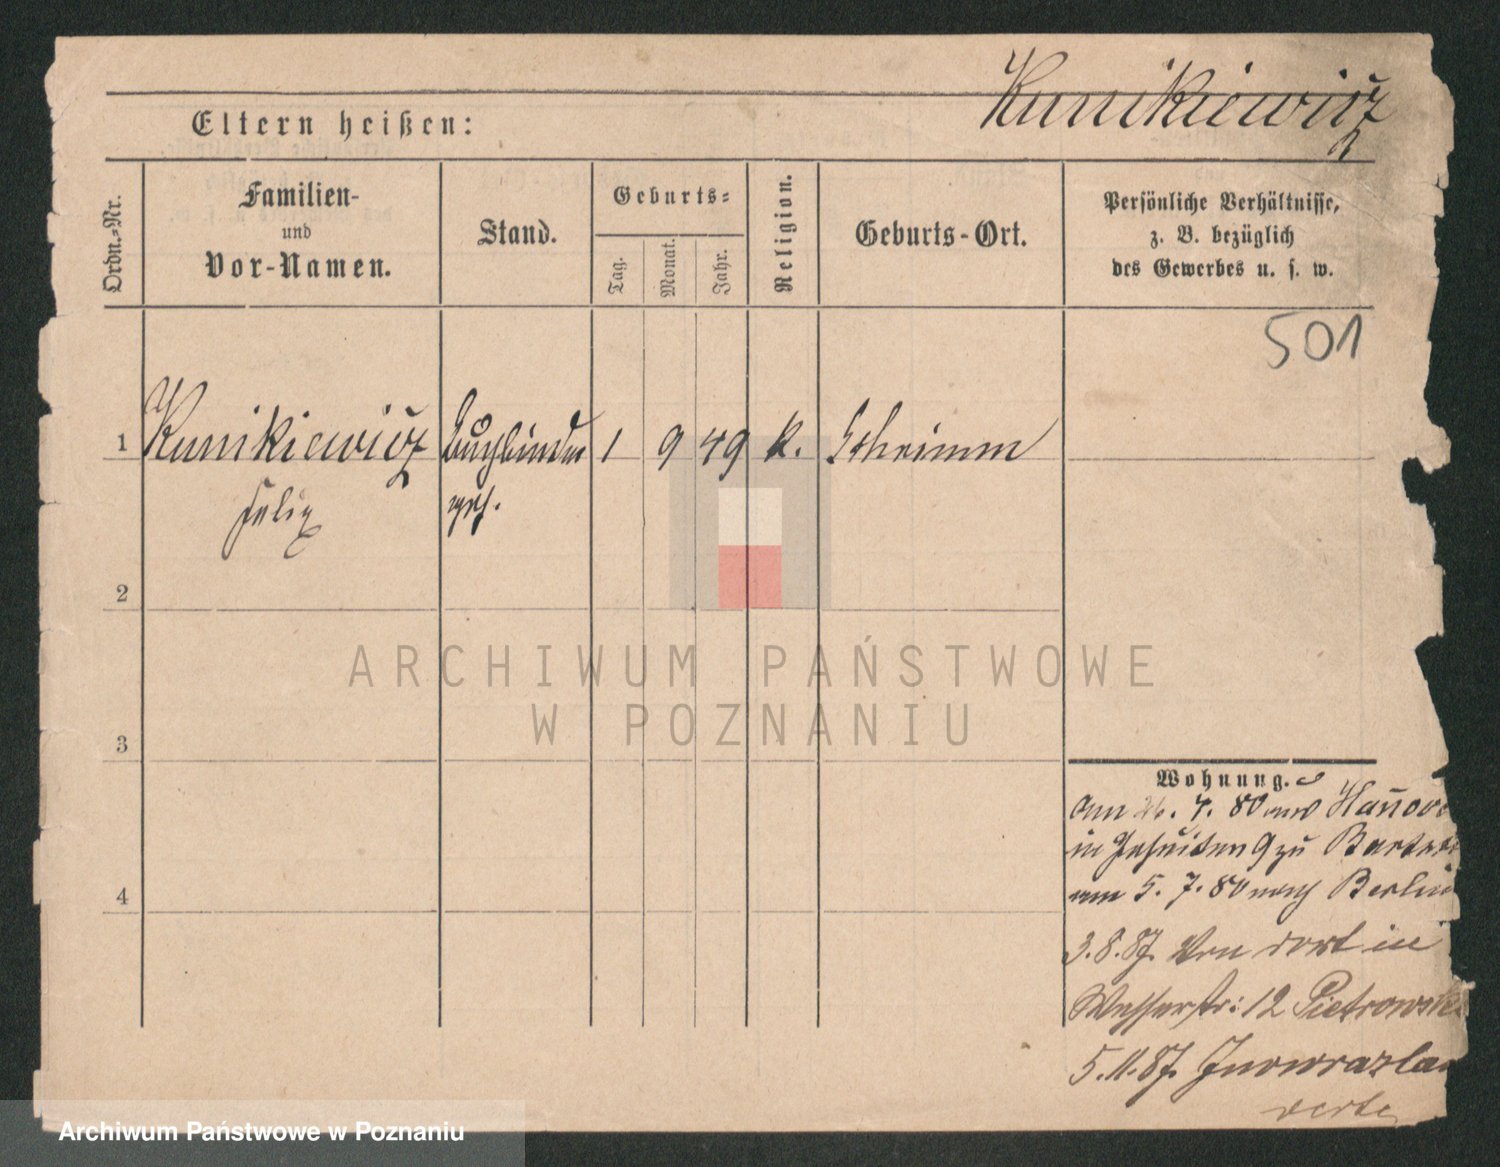 Kunikiewicz
Eltern heißen:
Ordn.-Nr.
Familien-
und
Vor-Namen.
Stand.
Geburts-
Tag.
Monat.
Jahr.
Religion.
Geburts-Ort.
Persönliche Verhältnisse,
z. B. bezüglich
des Gewerbes u. s. w.
501
1 Kunikiewicz Buchbinder 1 9 49 k. Schrimm
Felix ges.
2
3
4
Wohnung.
am 26. 4. 80 aus Hannove
in Jesuiten 9 zu
am 5. 7. 80 nach Berlin
3.8.87. Von dort in
Wasserstr: 12 Pietrowsk
5.11.87. Inowrazla
ARCHIWUM PAŃSTWOWE
W POZNANIU
Archiwum Państwowe w Poznaniu